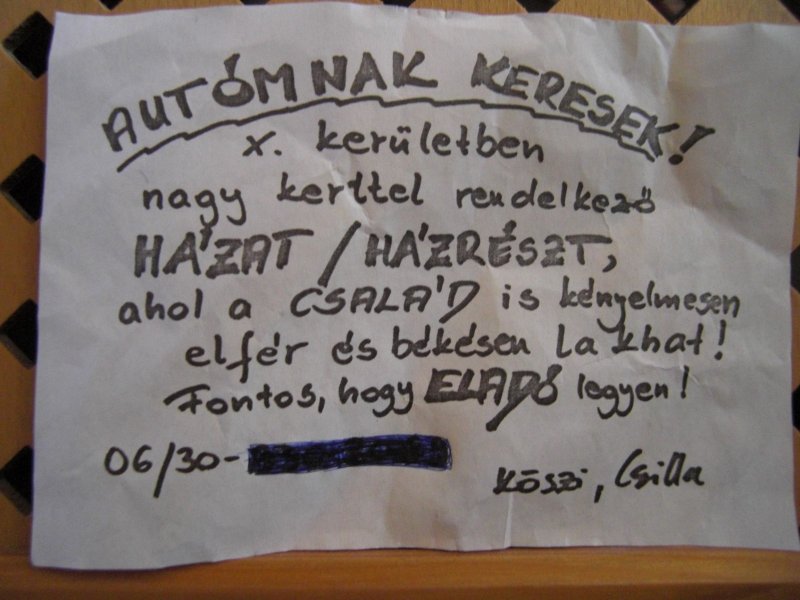 AUTÓMNAK KERESEK!
X. kerületben
nagy kerttel rendelkező
HÁZAT / HÁZRÉSZT,
ahol a CSALÁD is kényelmesen
elfér és békésen lakhat!
Fontos, hogy ELADÓ legyen!
06/30-
Köszi, Csilla